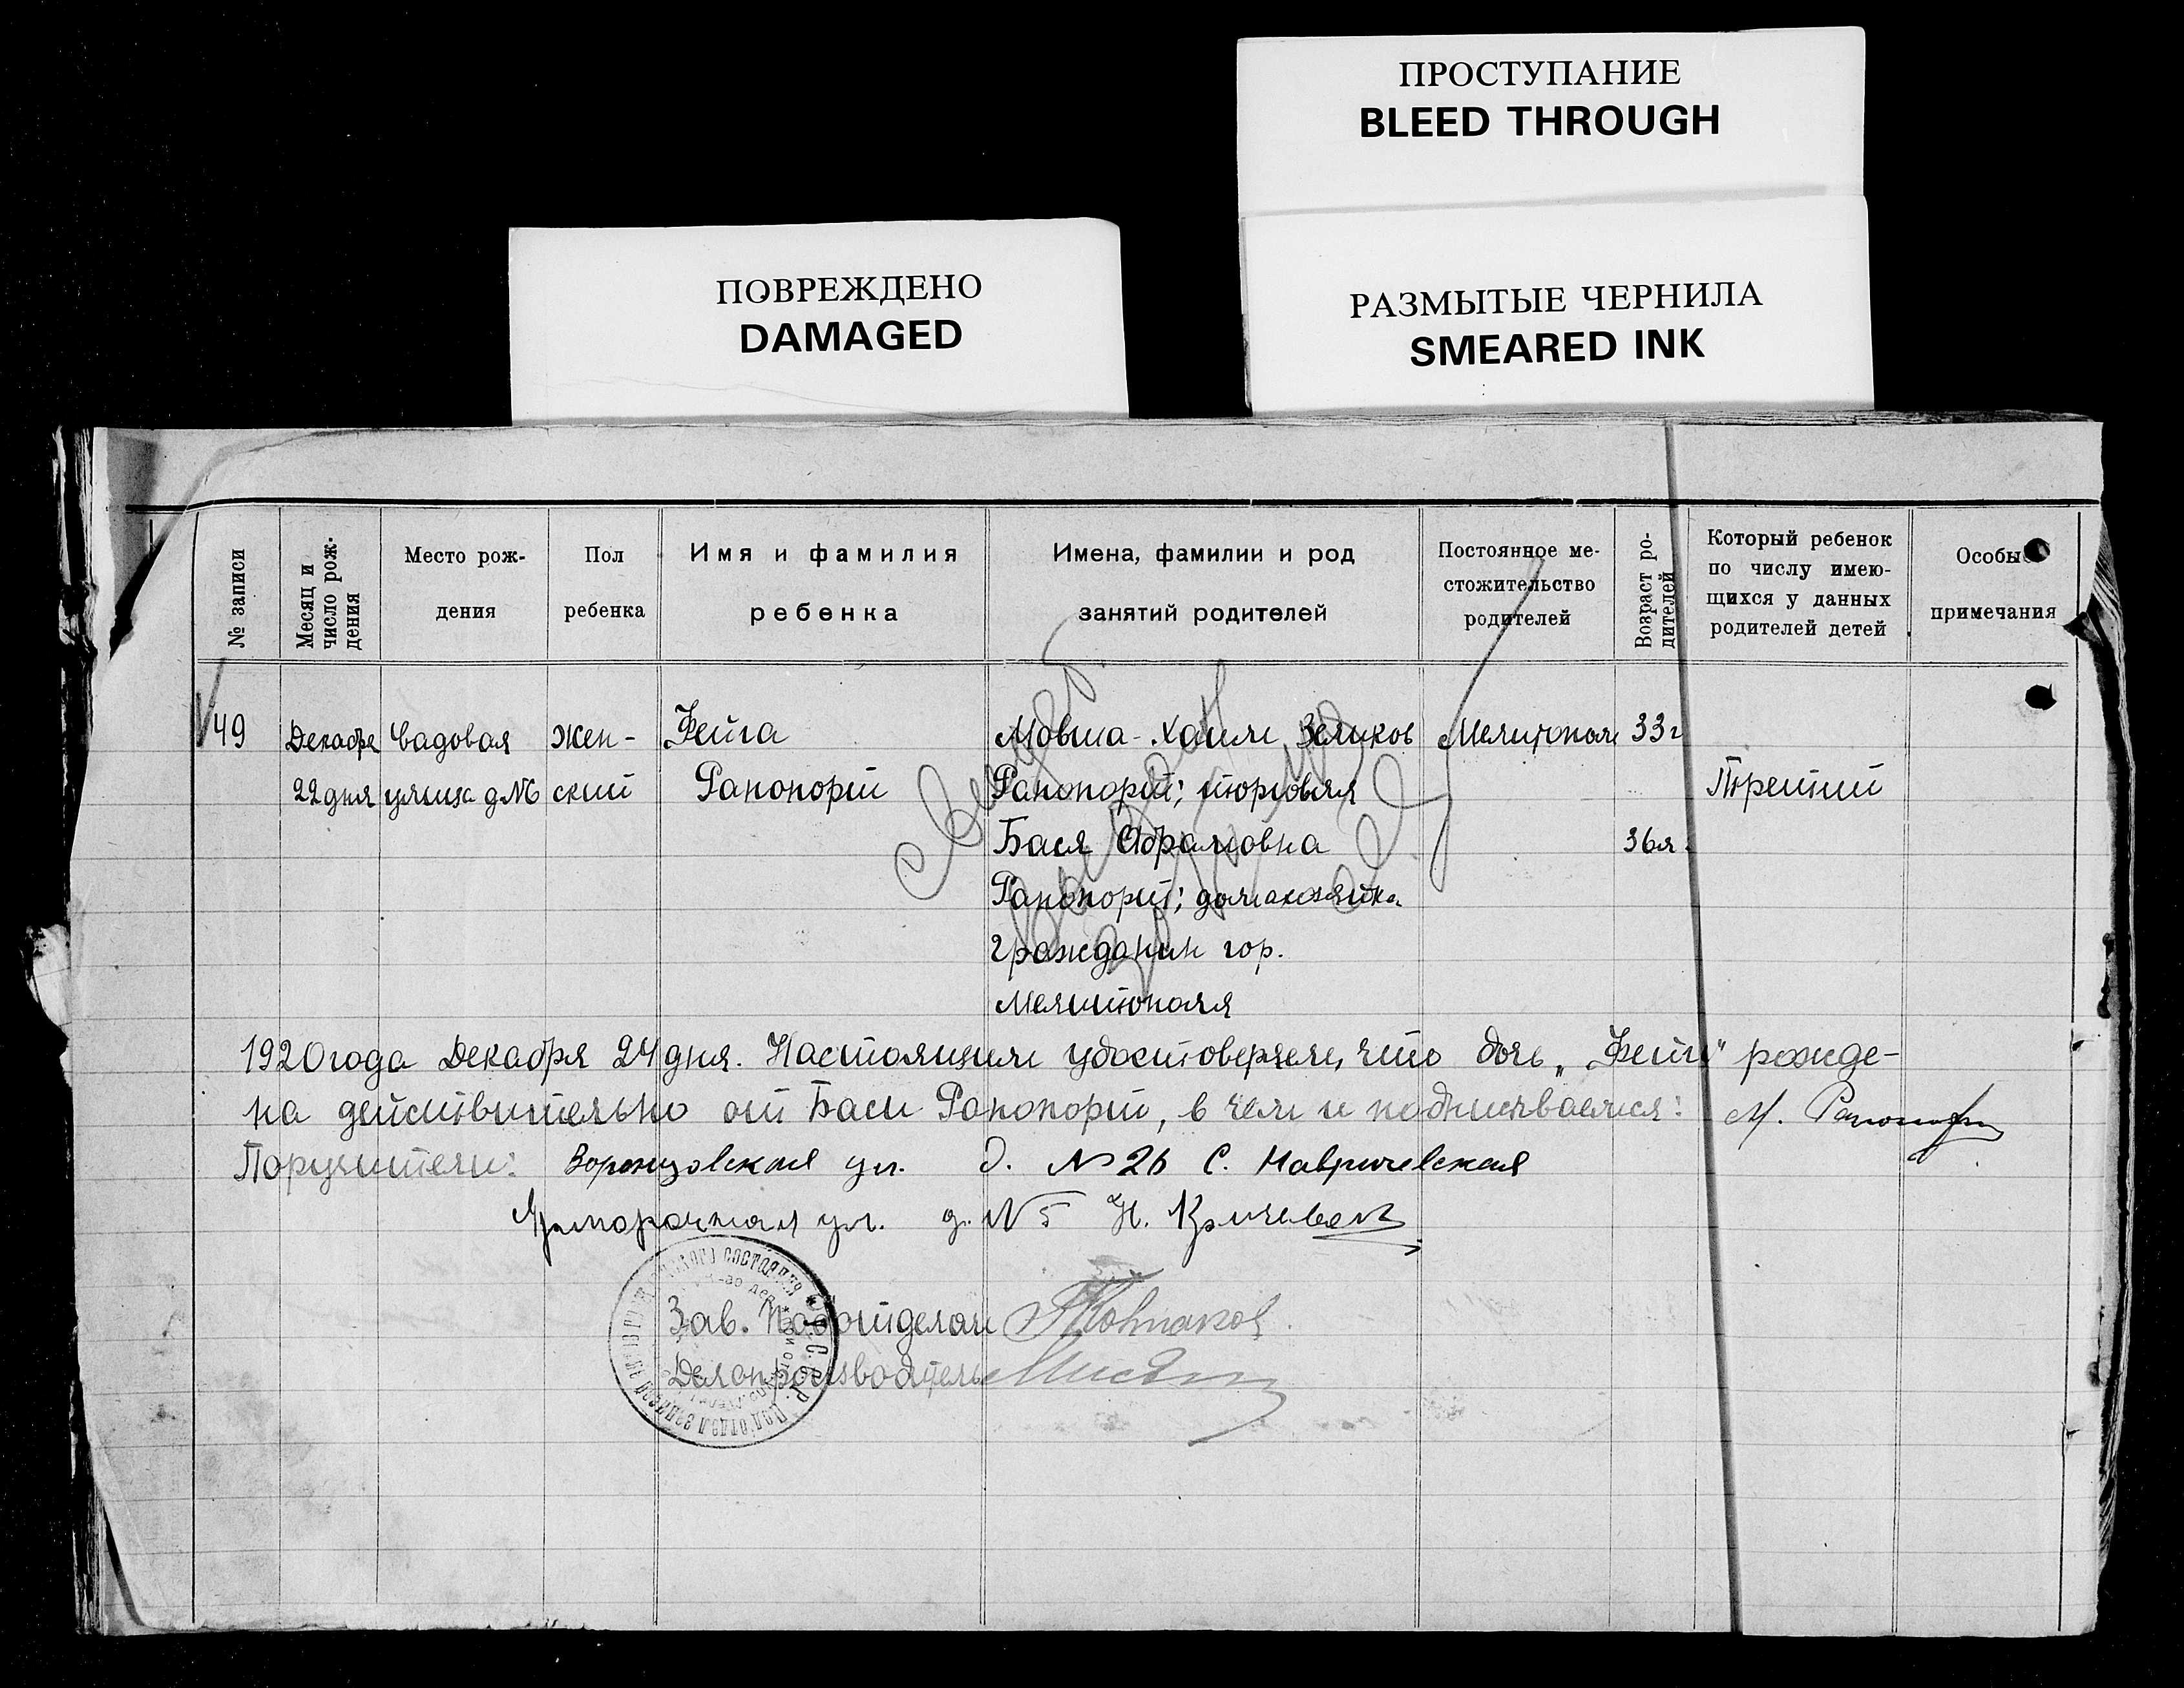 ПРОСТУПАНИЕ
BLEED THROUGH
РАЗМЫТЫЕ ЧЕРНИЛА
SMEARED INK
ПОВРЕЖДЕНО
DAMAGED
№ записи
Месяц и
число рож-
дения
Место рож-
дения
Пол
ребенка
Имя и фамилия
ребенка
Имена, фамилии и род
занятий родителей
Постоянное ме-
стожительство
родителей
Возраст ро-
дителей
Который ребенок
по числу имею-
щихся у данных
родителей детей
Особы
примечания
49
Декабря
22 дня
Садовая
улица д №6
Жен-
ский
Фейга
Рапопорт
Мовша-Хаим Зеликов
Рапопорт; торговля
Бася Абрамовна
Рапопорт; домахозяйка
граждани гор.
Мелитополя
Мелитополь
33 г
36 л.
Третий
1920 года Декабря 24 дня. Настоящим удостоверяем, что дочь „Фейга" рожде-
на действительно от Баси Рапопорт, в чем и подписываемся: М. Рапопорт
Поручители: Воронцовская ул. д. № 26 С.
Ярморочная ул. д. № 5 Н.
Зав. Подотделом
Делопроизводитель